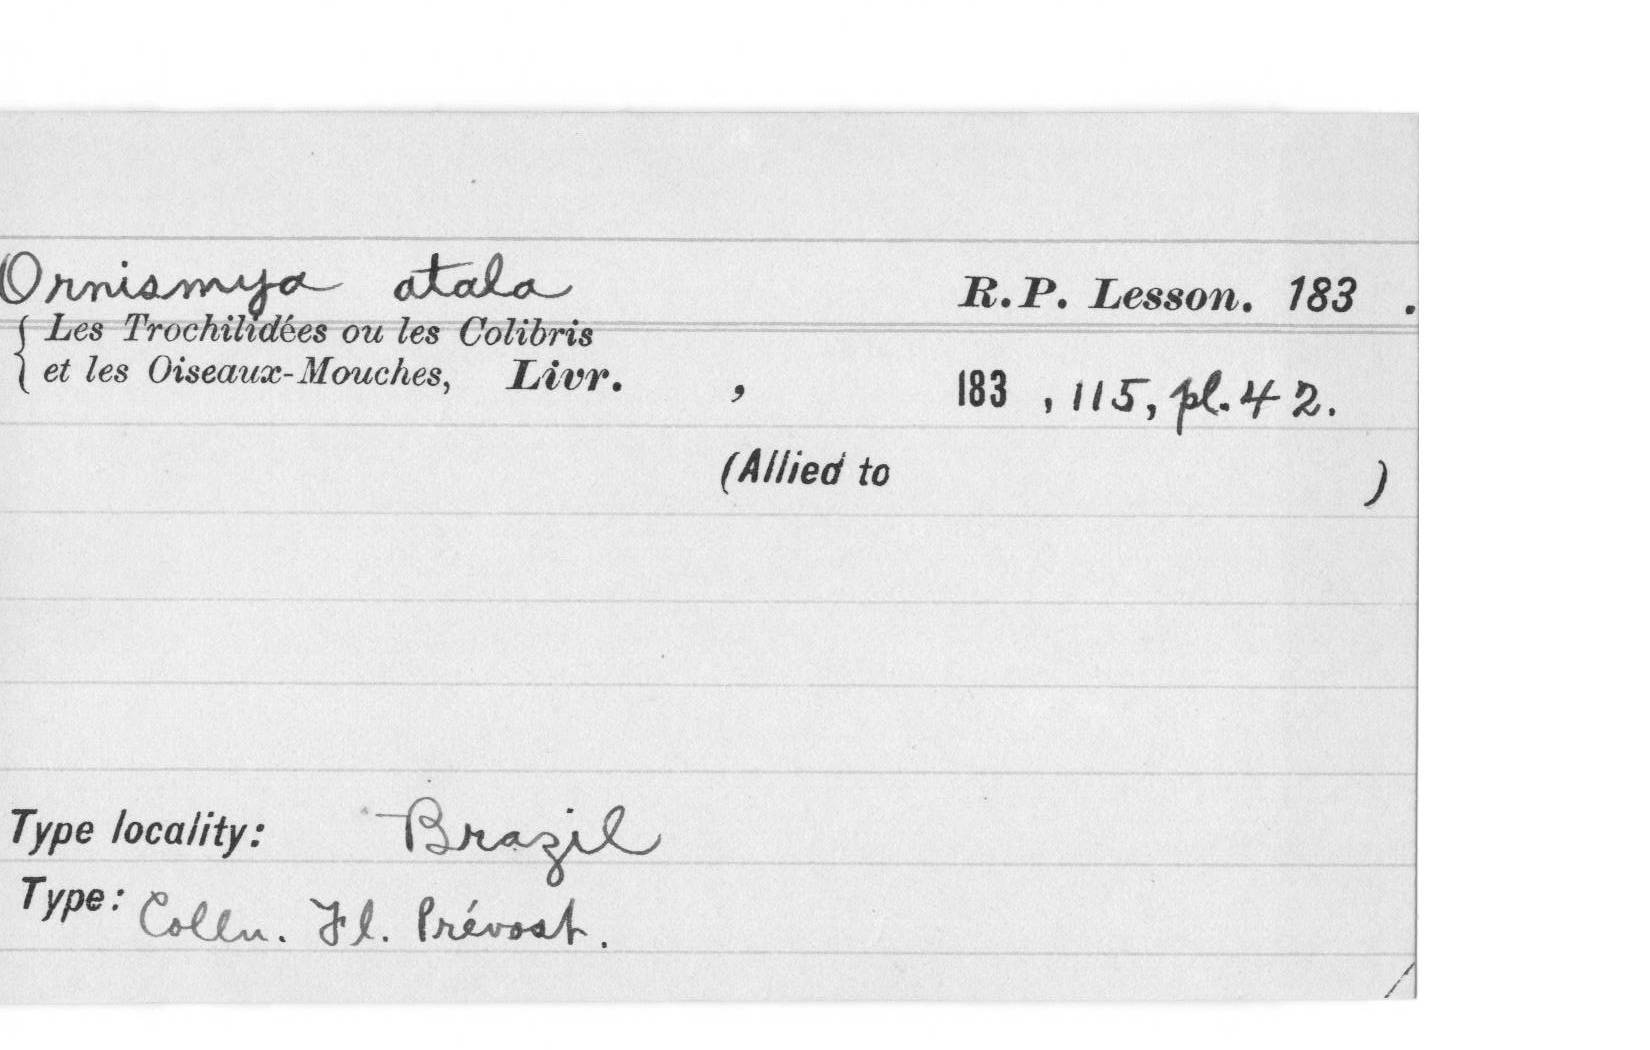 Ornismya atala R. P. Lesson. 183 .
Les Trochilidées ou les Colibris
et les Oiseaux-Mouches, Livr. , 183 , 115, pl. 42.
(Allied to )
Type locality: Brazil
Type: Colln. Fl. Prévost.